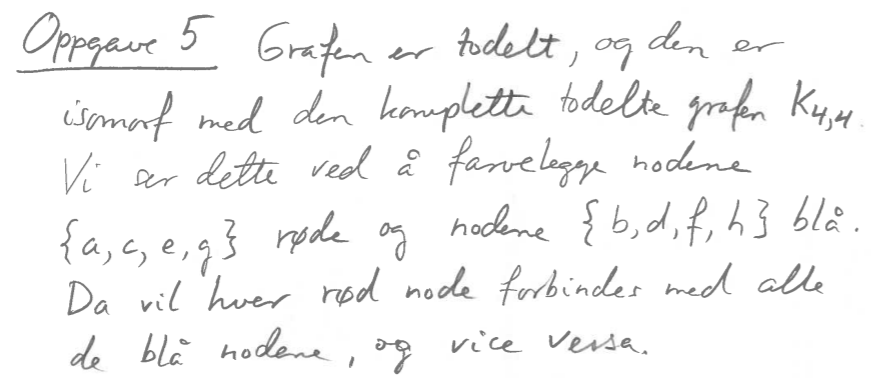 Oppgave 5 Grafen er todelt, og den er
isomorf med den komplette todelte grafen K4,4.
Vi ser dette ved å farvelegge nodene
{a, c, e, g} røde og nodene {b, d, f, h} blå.
Da vil hver rød node forbindes med alle
de blå nodene, og vice versa.